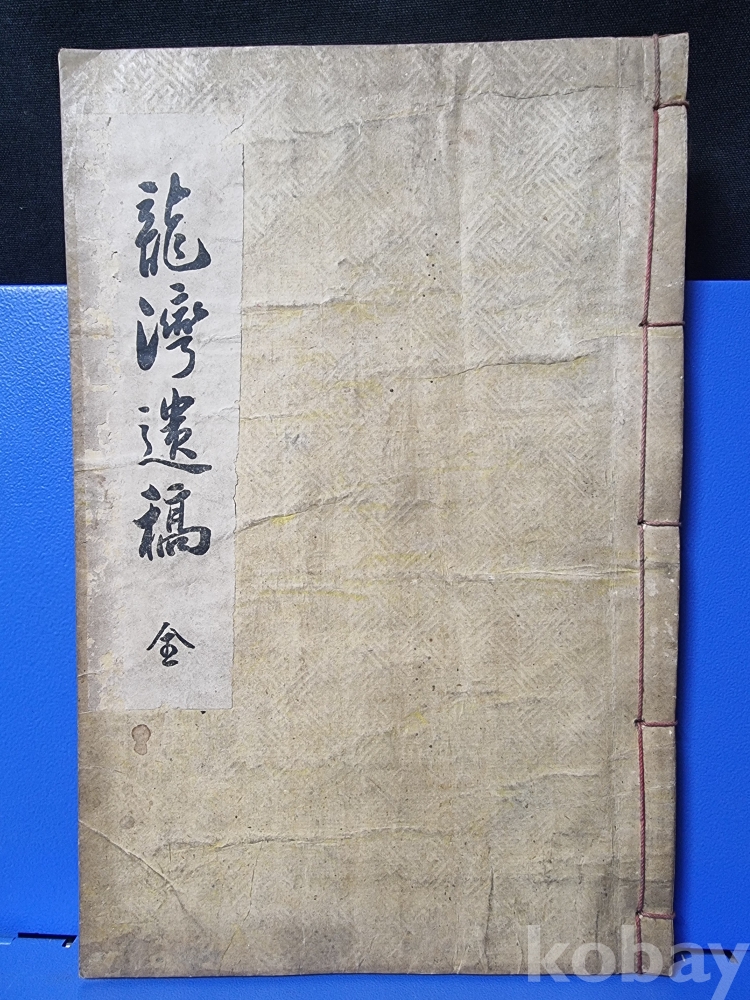 龍灣遺稿 全
kobay